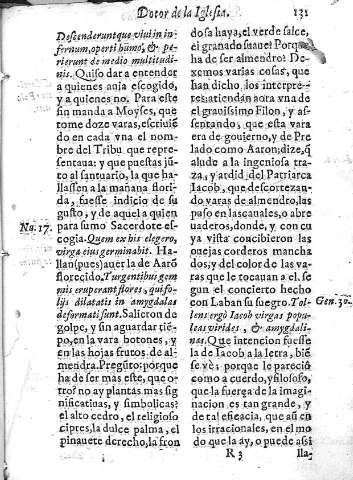 Dotor de la Iglesia. 131
Descenderuntque vivi in in-
fernum, operti humo, & pe-
rierunt de medio multitudi-
nis. Quiso dar a entender
a quienes auia escogido,
y a quienes no. Para este
fin manda a Moyses, que
tome doze varas, escriuiē
do en cada vna el nombre
del Tribu que repre-
sentaua: y que puestas jū-
to al santuario, la que ha-
llassen a la mañana flori-
da, fuesse indicio de su
gusto, y de aquel a quien
para sumo Sacerdote es-
Nu. 17.
cogia. Quem ex his elegero,
virga eius germinabit. Ha-
llan (pues) auer la de Aarō
florecido. Turgentibus gem
mis eruperant flores, qui fo-
lijs dilatatis in amygdalas
deformati sunt. Salieron de
golpe, y sin aguardar tiē-
po, en la vara botones, y
en las hojas frutos de al-
mendra. Pregūto: porque
ha de ser mas este, que o-
tro? no ay plantas mas sig
nificatiuas, y simbolicas?
el alto cedro, el religioso
cipres, la dulce palma, el
pinauete derecho, la fron
dosa haya, el verde salce,
el granado suaue? Porque
ha de ser almendro? De-
xemos varias cosas, que
han dicho los interpre-
tes: atiendan aora vna de
el grauissimo Filon, y as-
sentando, que esta vara
era de gouierno, y de Pre
lado como Aaron; dize, q̃
alude a la ingeniosa tra-
za, y ardid del Patriarca
Iacob, que descortezan-
do varas de almendro, las
puso en las canales, o abre
uaderos, donde, y con cu
ya vista concibieron las
ouejas corderos mancha
dos; y del color de las va-
ras que le tocauan a el, se
gun el concierto hecho
con Laban su suegro. Tol-
Gen. 30.
lens ergò Iacob virgas popu
leas virides, & amygdali-
nas. Que intencion fuesse
la de Iacob a la letra, biē
se vè; porque le pareciò
como a cuerdo, y filosofo,
que la fuerza de la imagi-
nacion es tan grande, y
de tal eficacia, que aū en
los irracionales, en el mo
do que la ay, o puede assi
R 3 lla-